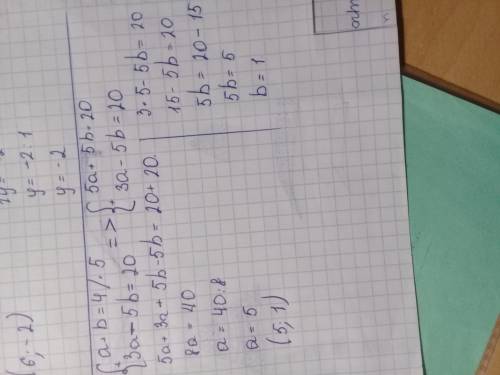 (6; -2)
y = -2 : 1
y = -2
{ a + b = 4 /· 5 => { 5a + 5b = 20
{ 3a - 5b = 20 { 3a - 5b = 20
5a + 3a + 5b - 5b = 20 + 20
8a = 40
a = 40 : 8
a = 5
(5; 1)
3 · 5 - 5b = 20
15 - 5b = 20
5b = 20 - 15
5b = 5
b = 1